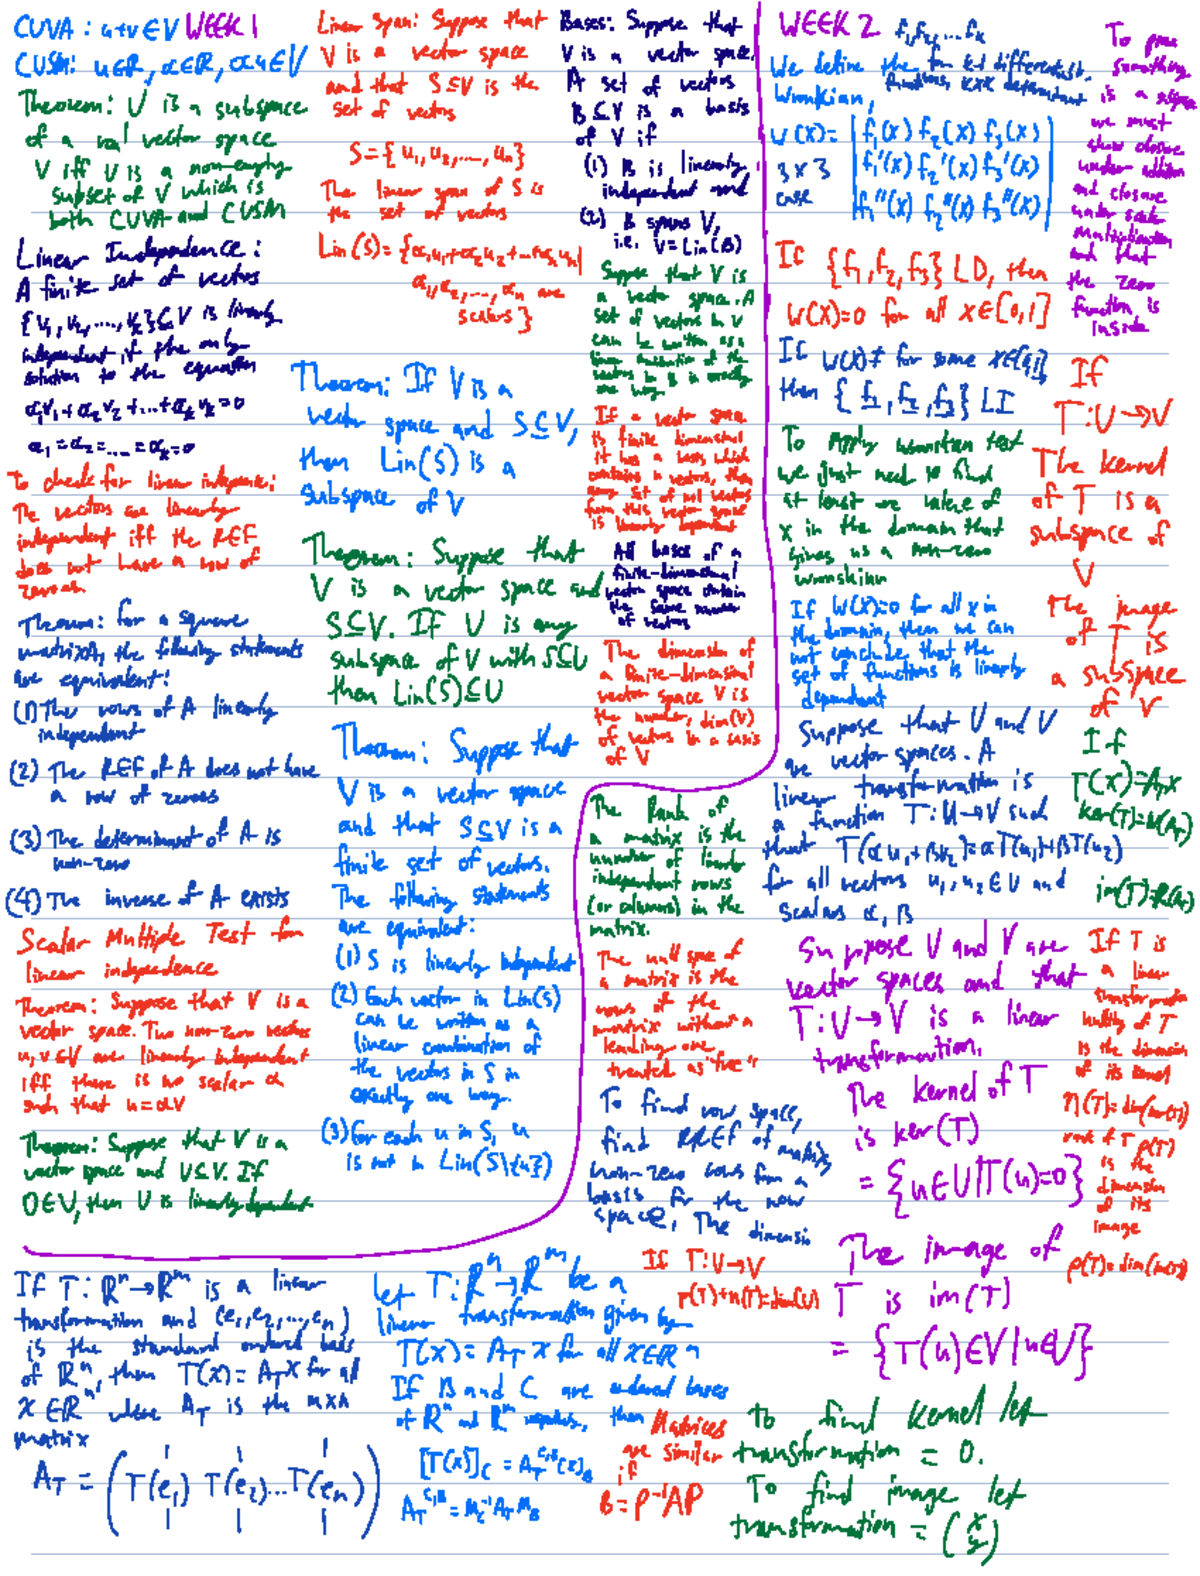 CUVA : u+v∈V WEEK 1
CUSM: u∈R, α∈R, αu∈V
Theorem: U is a subspace
of a real vector space
V iff U is a non-empty
subset of V which is
both CUVA and CUSM
Linear Independence :
A finite set of vectors
{v₁, v₂, ..., vₖ}⊆V is linearly
independent if the only
solution to the equation
α₁v₁+α₂v₂+...+αₖvₖ=0
α₁=α₂=....=αₖ=0
To check for linear indepence:
The vectors are linearly
independent iff the REF
does not have a row of
zeroes
Theorem: for a square
matrix A, the following statements
are equivalent:
(1) The rows of A linearly
independent
(2) The REF of A does not have
a row of zeroes
(3) The determinant of A is
non-zero
(4) The inverse of A exists
Scalar Multiple Test for
linear independence
Theorem: Suppose that V is a
vector space. Two non-zero vectors
u, v∈V are linearly independent
iff there is no scalar α
such that u=αv
Theorem: Suppose that V is a
vector space and U⊆V. If
0∈V, then U is linearly dependent
Linear Span: Suppose that
V is a vector space
and that S⊆V is the
set of vectors
S={u₁, u₂, ..., uₙ}
The linear span of S is
the set of vectors
Lin(S)={α₁u₁+α₂u₂+...+αₙuₙ|
α₁, α₂, ..., αₙ are
scalars}
Theorem: If V is a
vector space and S⊆V,
then Lin(S) is a
subspace of V
Theorem: Suppose that
V is a vector space and
S⊆V. If U is any
subspace of V with S⊆U
then Lin(S)⊆U
Theorem: Suppose that
V is a vector space
and that S⊆V is a
finite set of vectors.
The following statements
are equivalent:
(1) S is linearly independent
(2) Each vector in Lin(S)
can be written as a
linear combination of
the vectors in S in
exactly one way.
(3) For each u in S, u
is not in Lin(S\{u})
Bases: Suppose that
V is a vector space.
A set of vectors
B⊆V is a basis
of V if
(1) B is linearly
independent and
(2) B spans V,
i.e. V=Lin(B)
Suppose that V is
a vector space. A
set of vectors in V
can be written as a
linear combination of the
vectors in B in exactly
one way
If a vector space
is finite dimensional
it has a basis which
contains n vectors, then
any set of n+1 vectors
from this vector space
is linearly dependent
All bases of a
finite-dimensional
vector space contain
the same number
of vectors
The dimension of
a finite-dimensional
vector space V is
the number, dim(V)
of vectors in a basis
of V
The Rank of
a matrix is the
number of linearly
independent rows
(or columns) in the
matrix.
The null space of
a matrix is the
rows of the
matrix without a
leading one
treated as "free"
To find row space,
find RREF of matrix,
non-zero rows form a
basis for the row
space, The dimensio
If T:U→V
r(T)+n(T)=dim(U)
WEEK 2 f₁, f₂, ... fₖ
We define the for k-1 differentiable
functions, kxk determinant
Wronkian,
W(X)= |f₁(x) f₂(x) f₃(x)|
3x3 |f₁'(x) f₂'(x) f₃'(x)|
case |f₁''(x) f₂''(x) f₃''(x)|
If {f₁, f₂, f₃} LD, then
W(X)=0 for all x∈[0,1]
If W(x)≠ for some x∈[0,1],
then {f₁, f₂, f₃} LI
To Apply wronskian test
we just need to find
at least one value of
x in the domain that
gives us a non-zero
wronskian
If W(X)=0 for all x in
the domain, then we can
not conclude that the
set of functions is linearly
dependent
Suppose that U and V
are vector spaces. A
linear transformation is
a function T:U→V such
that T(αu₁+βu₂)=αT(u₁)+βT(u₂)
for all vectors u₁, u₂∈U and
scalars α, β
Suppose U and V are
vector spaces and that
T:U→V is a linear
transformation.
The kernel of T
is ker(T)
= {u∈U|T(u)=0}
The image of
T is im(T)
= {T(u)∈V|u∈U}
To find kernel let
transformation = 0.
To find image let
transformation = (x
y)
To prove
something
is a subspace
we must
show closure
under addition
and closure
under scalar
multiplication
and that
the zero
function is
inside
If
T:U→V
The kernel
of T is a
subspace of
V
The image
of T is
a subspace
of V
If
T(X)=AₜX
ker(T)=N(Aₜ)
im(T)=R(Aₜ)
If T is
a linear
transformation
nullity of T
is the dimension
of its kernel
η(T)=dim(ker(T))
rank of T ρ(T)
is the
dimension
of its
image
ρ(T)=dim(im(T))
If T:Rⁿ→Rᵐ is a linear
transformation and (e₁, e₂, ..., eₙ)
is the standard ordered basis
of Rⁿ, then T(x)=AₜX for all
X∈Rⁿ, where Aₜ is the mxn
matrix
Aₜ = (T(e₁) T(e₂)...T(eₙ))
Let T:Rⁿ→Rᵐ be a
linear transformation given by
T(X)=AₜX for all X∈Rⁿ
If B and C are ordered bases
of Rⁿ and Rᵐ respectively, then
[T(X)]_C = A_T^{C,B}[X]_B
A_T^{C,B}=M_C⁻¹A_T M_B
Matrices
are similar
if
B=P⁻¹AP